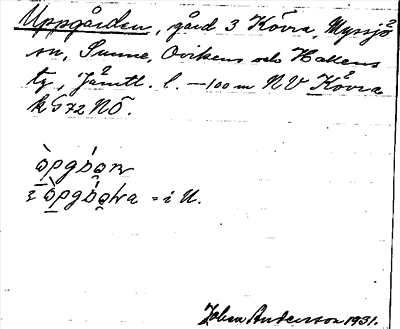 Uppgården, gård 3 Kövra, Myssjö
sn, Sunne, Ovikens och Hallens
tg, Jämtl. l. —100 m NV Kövra
k 572 NÖ.
= i U.
Johan Anderson 1931.